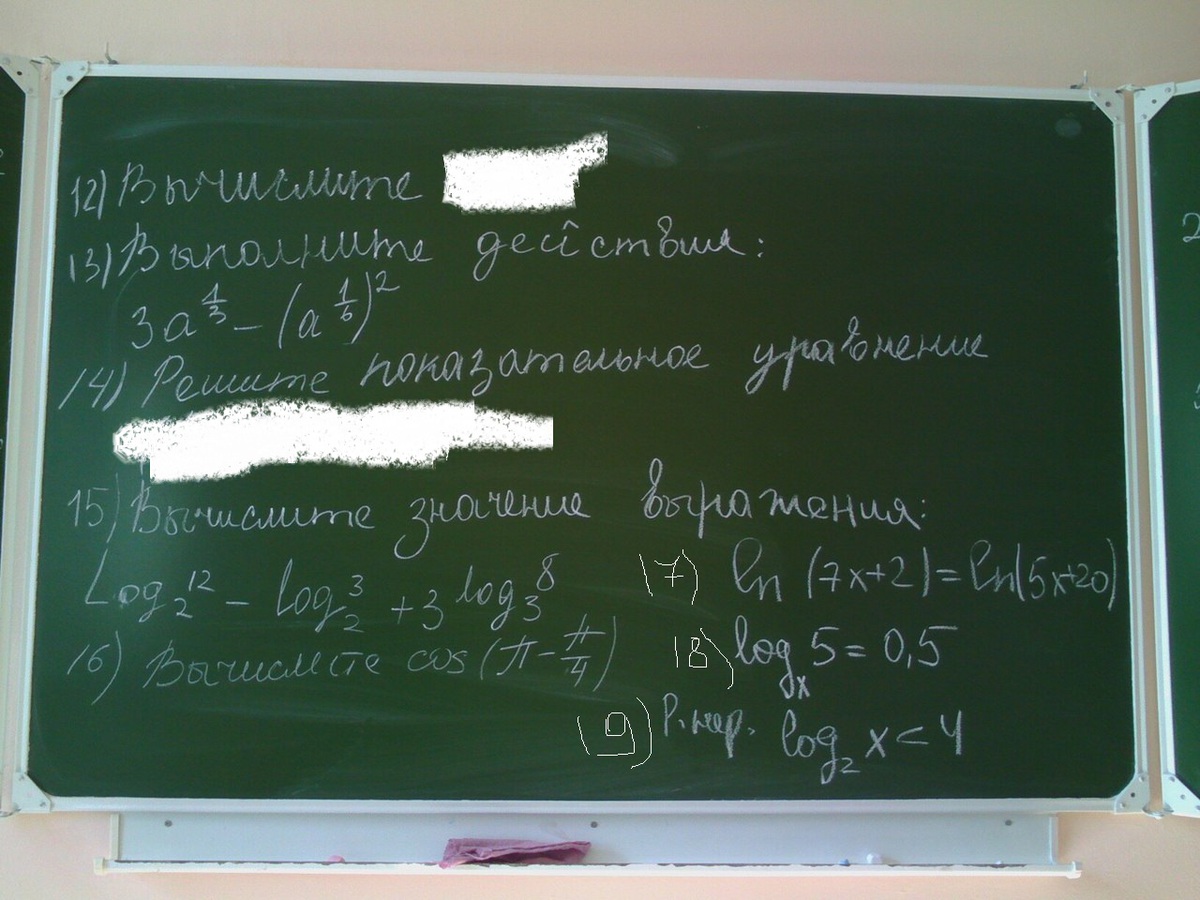 12) Вычислите
13) Выполните действия:
3a^{1/3} - (a^{1/6})^2
14) Решите показательное уравнение
15) Вычислите значение выражения:
Log_2 12 - log_2 3 + 3^{log_3 8}
16) Вычислите cos(π - π/4)
17) ln (7x+2) = ln(5x+20)
18) log_x 5 = 0,5
19) Р. нер. log_2 x < 4
2